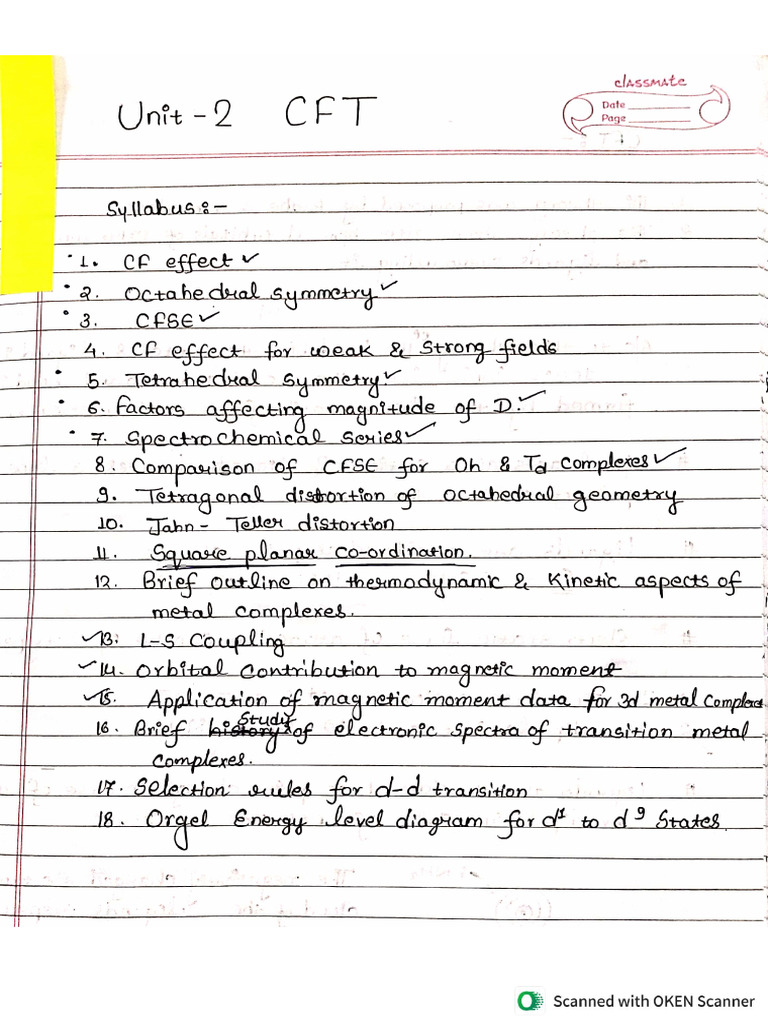 classmate
Date
Page
Unit - 2 CFT
Syllabus:-
1. CF effect ✓
2. Octahedral symmetry ✓
3. CFSE ✓
4. CF effect for weak & strong fields
5. Tetrahedral symmetry ✓
6. factors affecting magnitude of D. ✓
7. Spectrochemical series ✓
8. Comparison of CFSE for Oh & Td complexes ✓
9. Tetragonal distortion of octahedral geometry
10. Jahn - Teller distortion
11. Square planar co-ordination.
12. Brief outline on thermodynamic & Kinetic aspects of
metal complexes.
✓ 13. L-S Coupling
✓ 14. Orbital Contribution to magnetic moment
✓ 15. Application of magnetic moment data for 3d metal
Study
16. Brief history of electronic spectra of transition metal
complexes.
17. Selection rules for d-d transition
18. Orgel Energy level diagram for d¹ to d⁹ States.
Scanned with OKEN Scanner